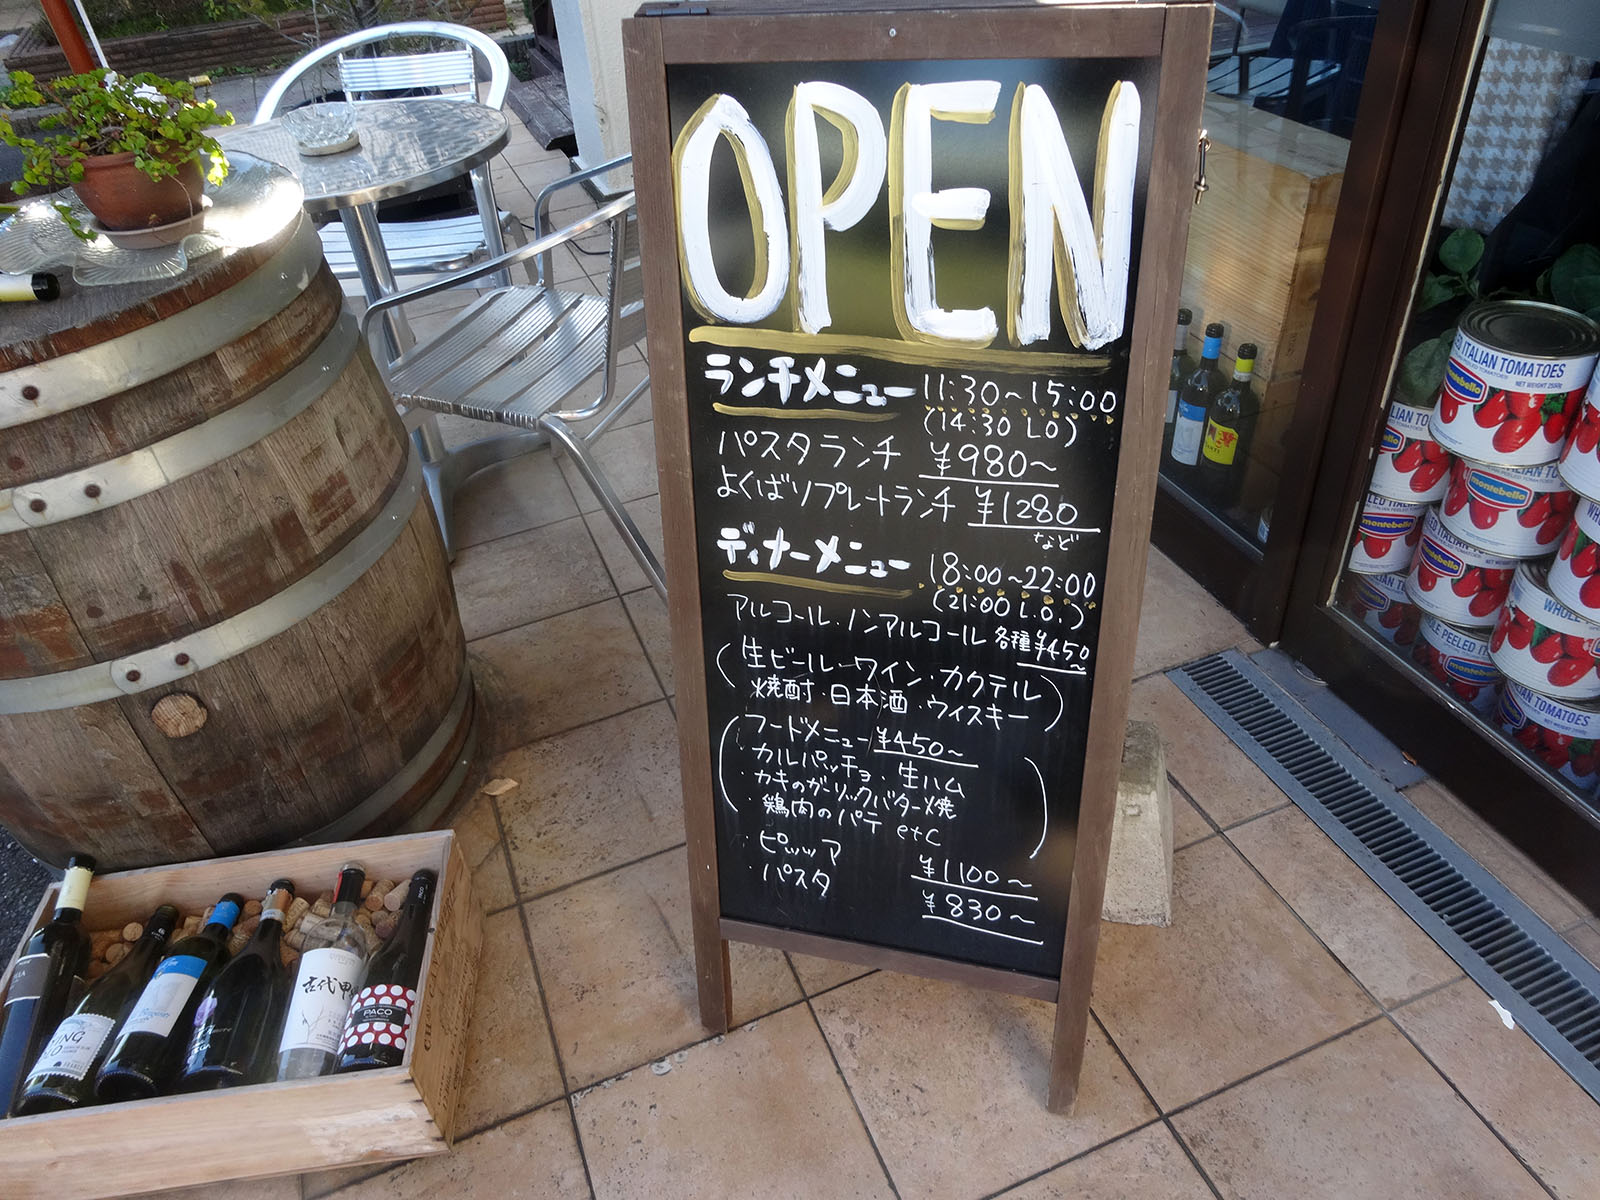 OPEN
ランチメニュー 11:30～15:00
(14:30 LO)
パスタランチ ¥980～
よくばりプレートランチ ¥1280
など
ディナーメニュー 18:00～22:00
(21:00 L.O.)
アルコール・ノンアルコール 各種¥450～
(生ビール・ワイン・カクテル
焼酎・日本酒・ウィスキー)
(フードメニュー ¥450～
・カルパッチョ・生ハム
・カキのガーリックバター焼
・鶏肉のパテ etc)
・ピッツァ ¥1100～
・パスタ ¥830～
ITALIAN TOMATOES
NET WEIGHT 2550g
montebello
montebello
montebello
montebello
WHOLE PEELED
TOMATOES
古代甲
PACO